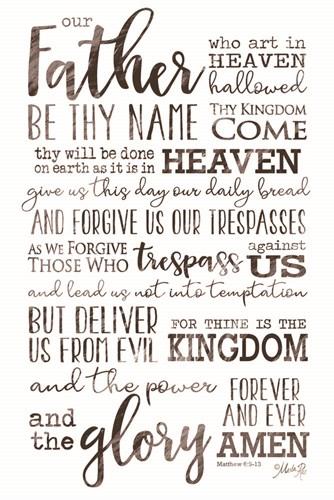 our
Father
who art in
HEAVEN
hallowed
BE THY NAME
THY KINGDOM
COME
thy will be done
on earth as it is in
HEAVEN
give us this day our daily bread
AND FORGIVE US OUR TRESPASSES
AS WE FORGIVE
THOSE WHO
trespass
against
US
and lead us not into temptation
BUT DELIVER
US FROM EVIL
FOR THINE IS THE
KINGDOM
and the power
and
the
glory
FOREVER
AND EVER
AMEN
Matthew 6:9-13